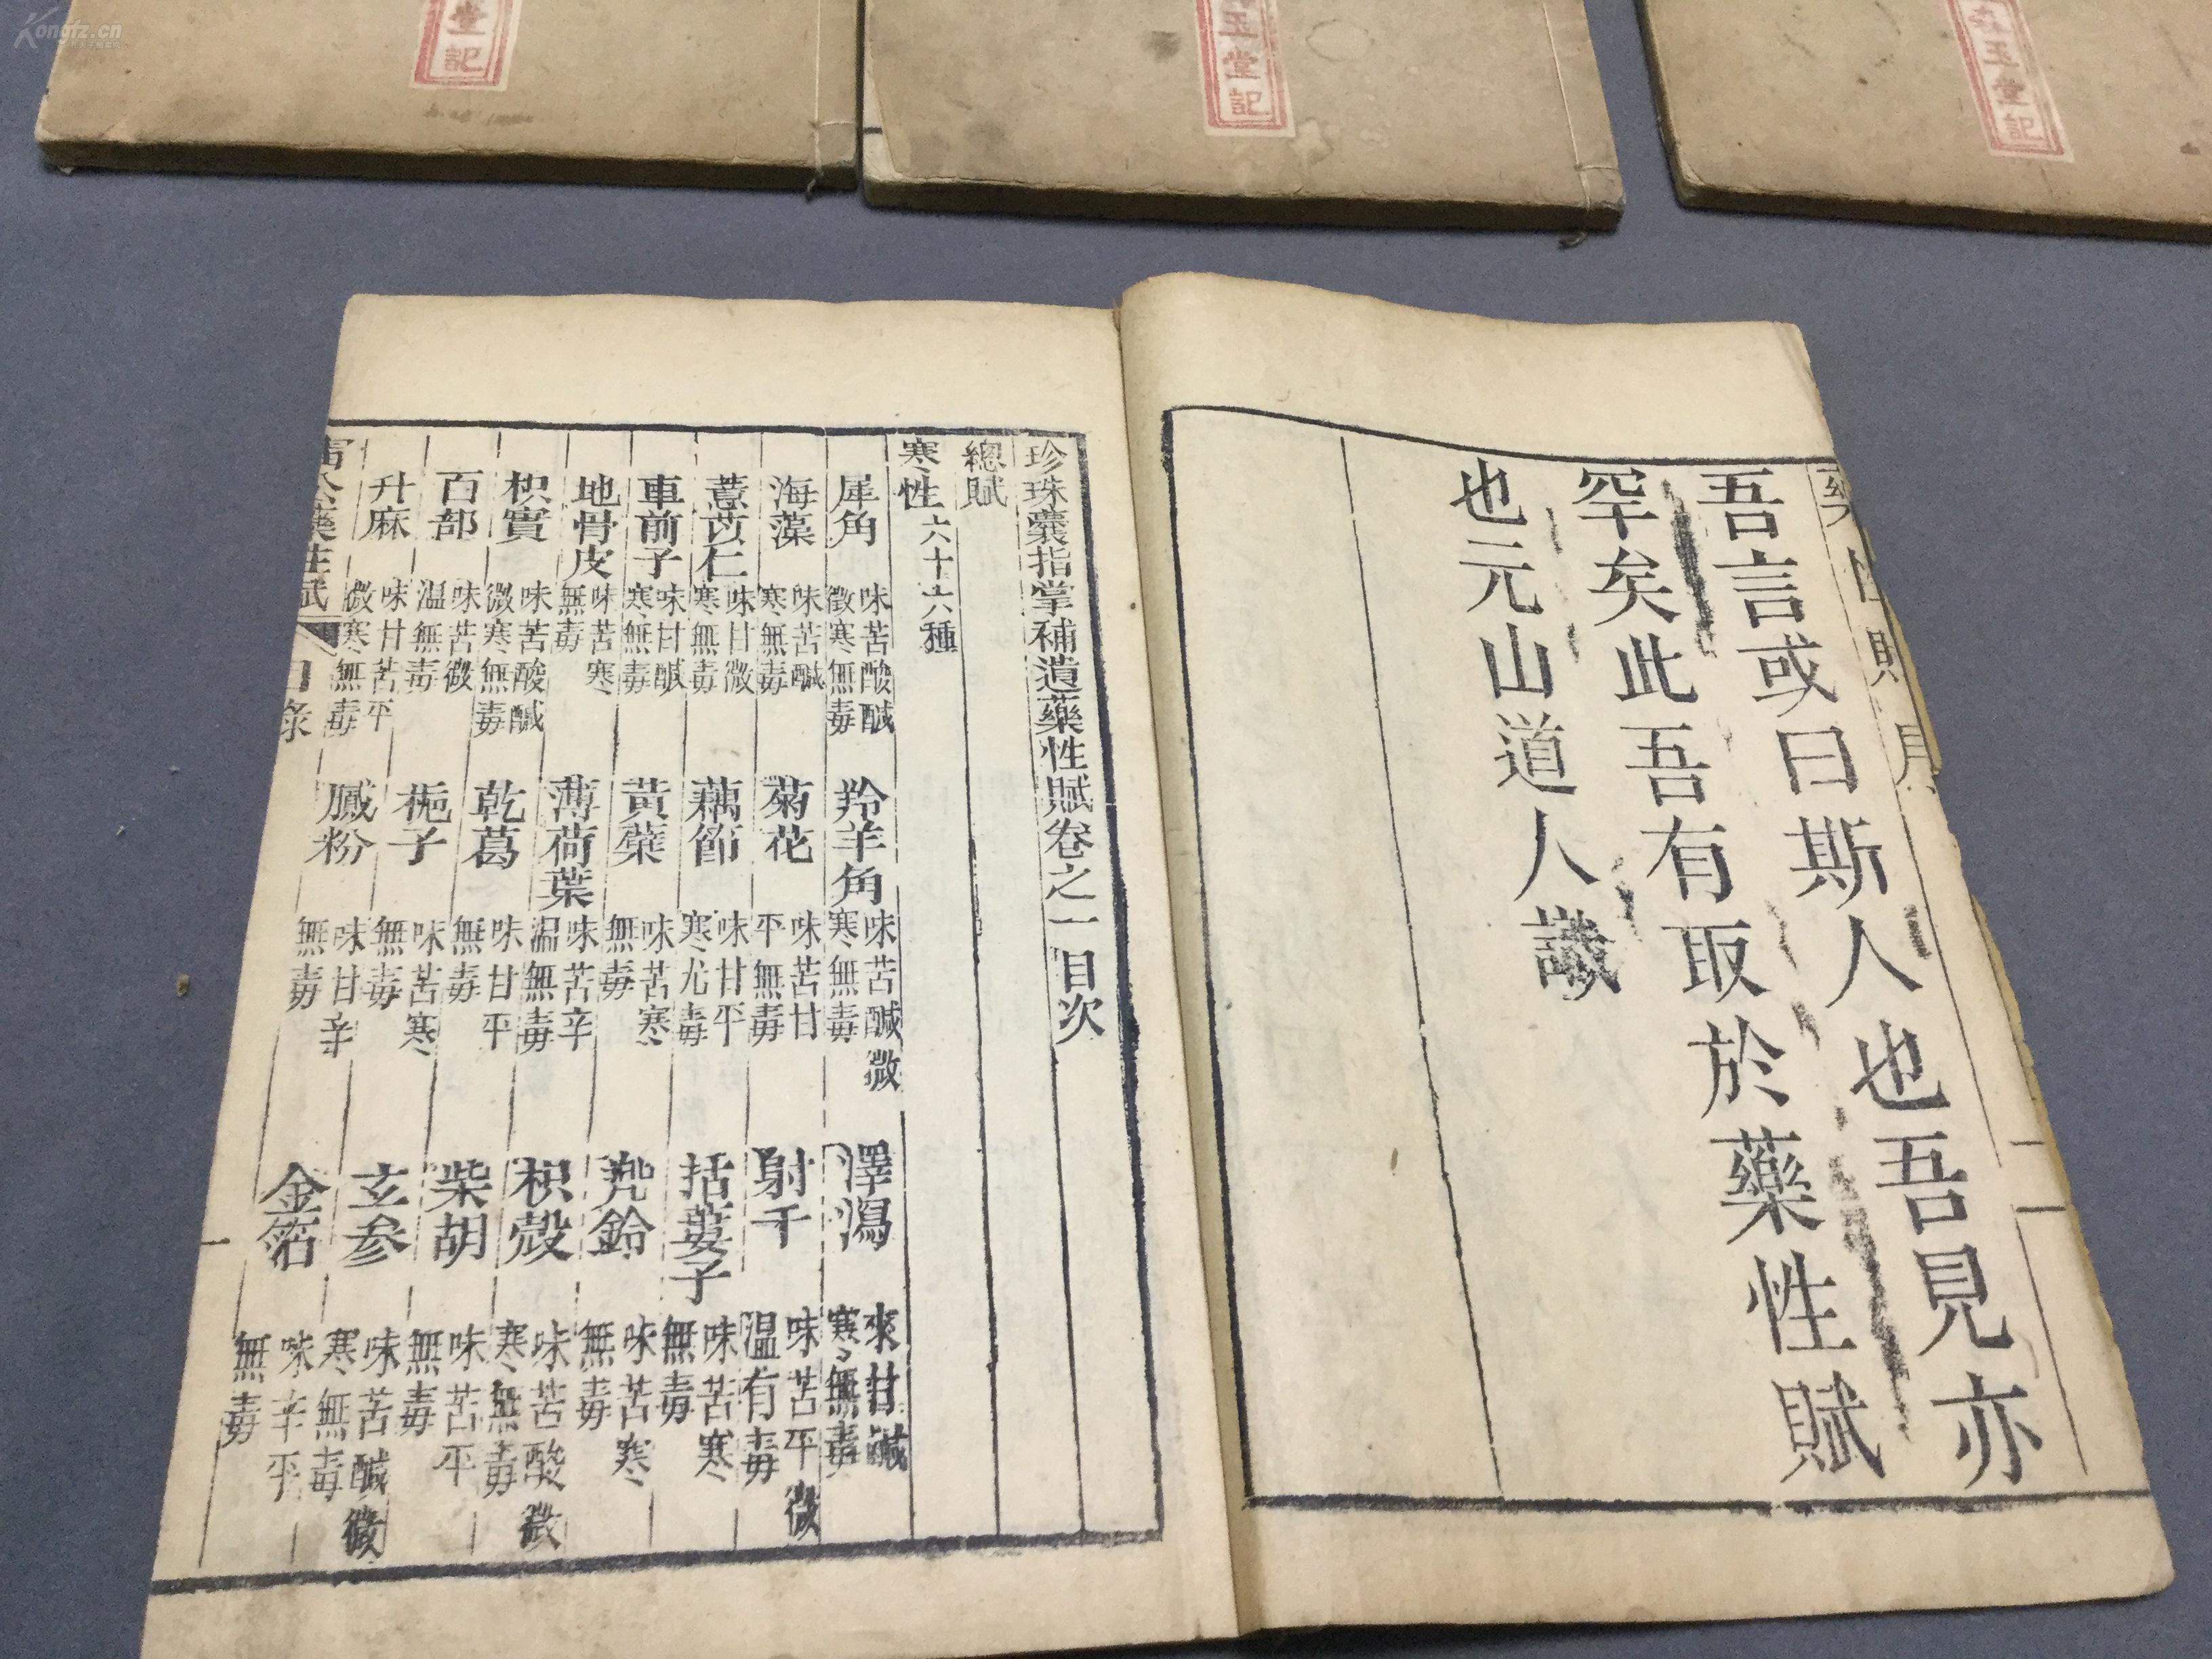 Kongfz.cn
堂記
玉堂記
玉堂記
吾言或曰斯人也吾見亦
罕矣此吾有取於藥性賦
也元山道人識
珍珠囊指掌補遺藥性賦卷之一目次
總賦
寒性六十六種
犀角 味苦酸鹹微寒無毒 羚羊角 味苦鹹微寒無毒 澤瀉 來甘鹹寒無毒
海藻 味苦鹹寒無毒 菊花 味苦甘平無毒 射干 味苦平微温有毒
薏苡仁 味甘微寒無毒 藕節 味甘平寒尤毒 括蔞子 味苦寒無毒
車前子 味甘鹹寒無毒 黃蘗 味苦寒無毒 兠鈴 味苦寒無毒
地骨皮 味苦寒無毒 薄荷葉 味苦辛温無毒 枳殼 味苦酸微寒無毒
枳實 味苦酸鹹微寒無毒 乾葛 味甘平無毒 柴胡 味苦平無毒
百部 味苦微温無毒 梔子 味苦寒無毒 玄參 味苦鹹微寒無毒
升麻 味甘苦平微寒無毒 膩粉 味甘辛無毒 金箔 味辛平無毒
藥性賦 目錄 一